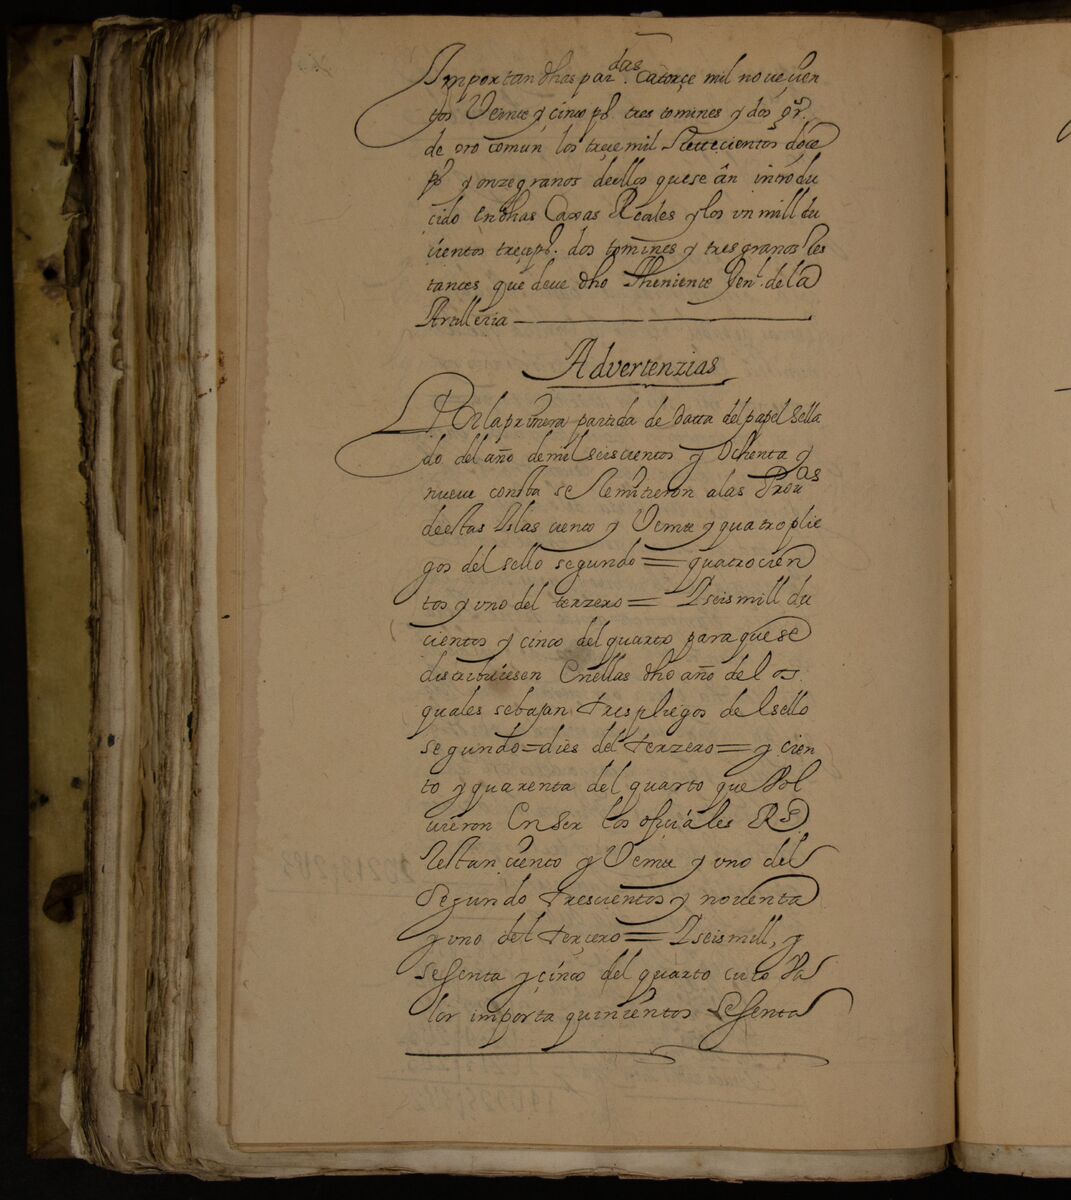 Importan dhas par.das Catorçe mil noveçien
tos Veinte y çinco ps. tres tomines y dos grs.
de oro comun los treçe mil Settecientos doçe
ps. y onze granos deellos que se ân introdu
cido En dhas Caxas Reales y los un mill du
çientos treçe ps. dos tomines y tres granos Res
tantes que deve dho Theniente Gen.l de la
Artilleria
Advertenzias
En la primera partida de datta del papel Sella
do del año de mil seiscientos y Ochenta y
nueve consta se Remitieron a las Prov.as
de estas Islas ciento y Veinte y quatro plie
gos del sello segundo = quatrocien
tos y uno del terzero = I seis mill du
cientos y cinco del quarto para que se
distribuiesen En ellas dho año de los
quales se bajan tres pliegos del sello
segundo = dies del terzero = y cien
to y quarenta del quarto que Vol
vieron En Ser los ofiçiales Rs
Restan çiento y Veinte y uno del
Segundo trescientos y noventa
y uno del terçero = I seis mill, y
sesenta y çinco del quarto cuio Va
lor importa quinientos Sesenta